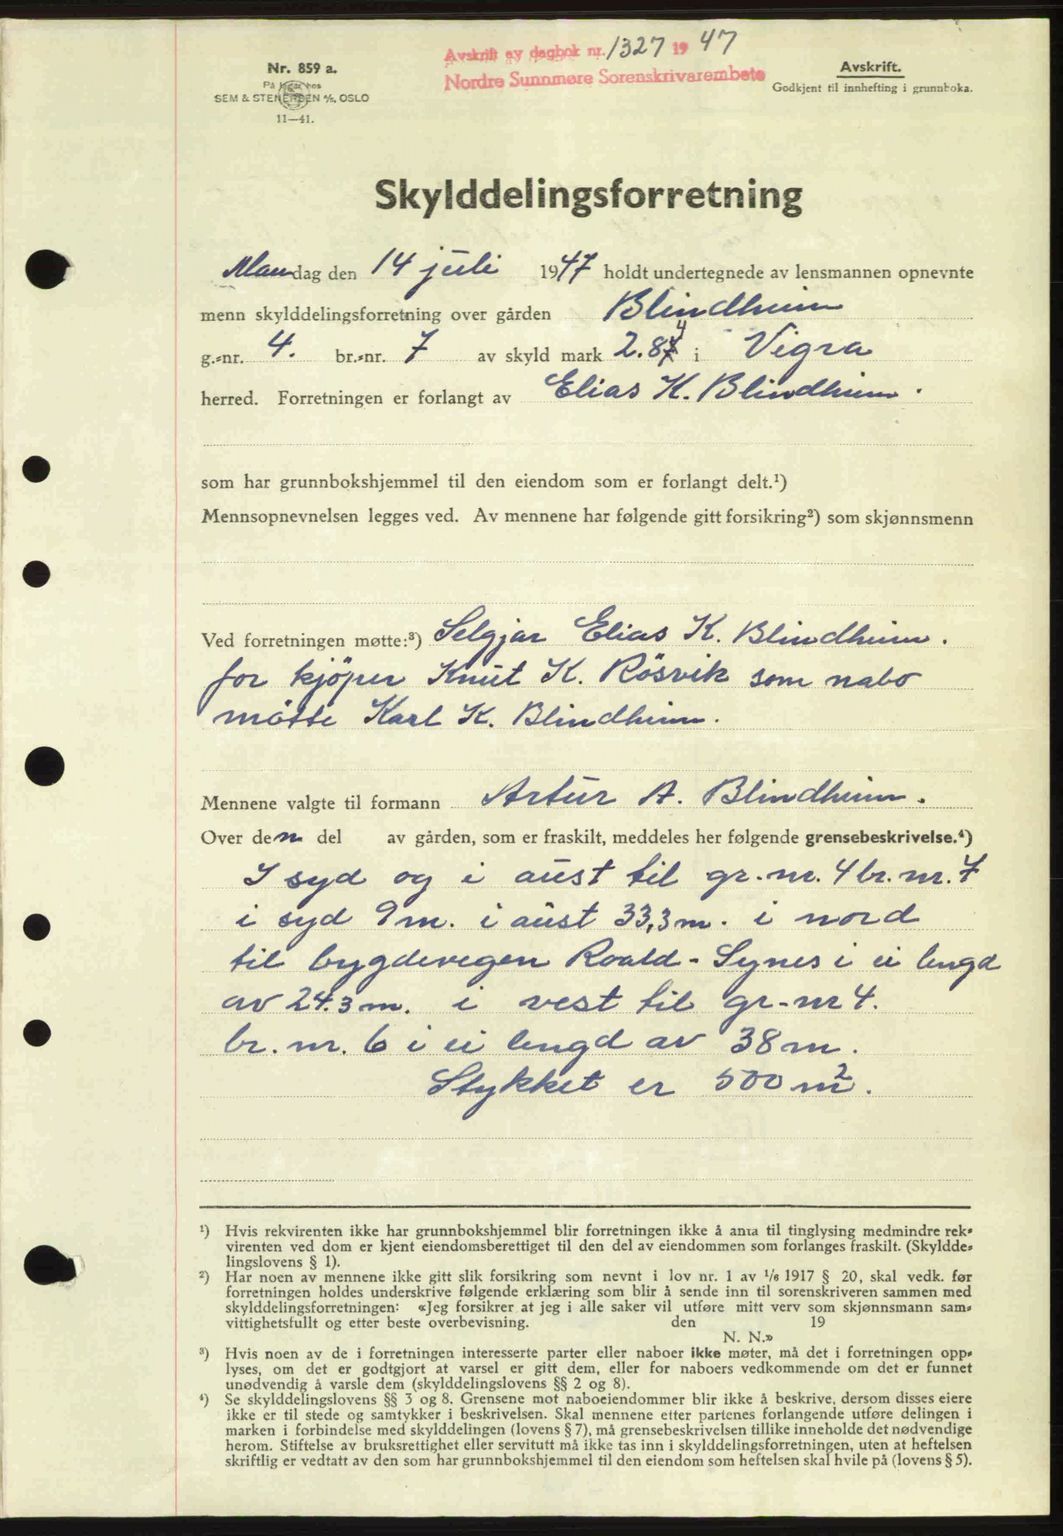 Avskrift av dagbok nr. 1327 19 47
Nordre Sunnmøre Sorenskrivarembete
Nr. 859 a.
På lager hos
SEM & STENERSEN A/S, OSLO
11—41.
Avskrift.
Godkjent til innhefting i grunnboka.
Skylddelingsforretning
Mandag den 14 juli 1947 holdt undertegnede av lensmannen opnevnte
menn skylddelingsforretning over gården Blindheim
g.-nr. 4. br.-nr. 7 av skyld mark 2.84 i Vigra
herred. Forretningen er forlangt av Elias K. Blindheim.
som har grunnbokshjemmel til den eiendom som er forlangt delt.¹)
Mennsopnevnelsen legges ved. Av mennene har følgende gitt forsikring²) som skjønnsmenn
Ved forretningen møtte:³) Selgjar Elias K. Blindheim.
for kjöper Knut K. Rösvik som nabo
mötte Karl K. Blindheim.
Mennene valgte til formann Artur A. Blindheim.
Over den del av gården, som er fraskilt, meddeles her følgende grensebeskrivelse.⁴)
I syd og i aust til gr.nr. 4 br.nr. 7
i syd 9 m. i aust 33,3 m. i nord
til bygdevegen Roald - Synes i ei lengd
av 24.3 m. i vest til gr-nr 4.
br. nr. 6 i ei lengd av 38 m.
Stykket er 500 m².
¹) Hvis rekvirenten ikke har grunnbokshjemmel blir forretningen ikke å anta til tinglysing medmindre rek-
virenten ved dom er kjent eiendomsberettiget til den del av eiendommen som forlanges fraskilt. (Skyldde-
lingslovens § 1).
²) Har noen av mennene ikke gitt slik forsikring som nevnt i lov nr. 1 av 1/6 1917 § 20, skal vedk. før
forretningen holdes underskrive følgende erklæring som blir å sende inn til sorenskriveren sammen med
skylddelingsforretningen: «Jeg forsikrer at jeg i alle saker vil utføre mitt verv som skjønnsmann sam-
vittighetsfullt og etter beste overbevisning. den 19
N. N.»
³) Hvis noen av de i forretningen interesserte parter eller naboer ikke møter, må det i forretningen opp-
lyses, om det er godtgjort at varsel er gitt dem, eller for naboers vedkommende om det er funnet
unødvendig å varsle dem (skylddelingslovens §§ 2 og 8).
⁴) Se skylddelingslovens §§ 3 og 8. Grensene mot naboeiendommer blir ikke å beskrive, dersom disses eiere
ikke er til stede og samtykker i beskrivelsen. Skal mennene etter partenes forlangende utføre delingen i
marken i forbindelse med skylddelingen (lovens § 7), må grensebeskrivelsen tillike inneholde det nødvendige
herom. Stiftelse av bruksrettighet eller servitutt må ikke tas inn i skylddelingsforretningen, uten at heftelsen
skriftlig er vedtatt av den som har grunnbokshjemmel til den eiendom som heftelsen skal hvile på (lovens § 5).